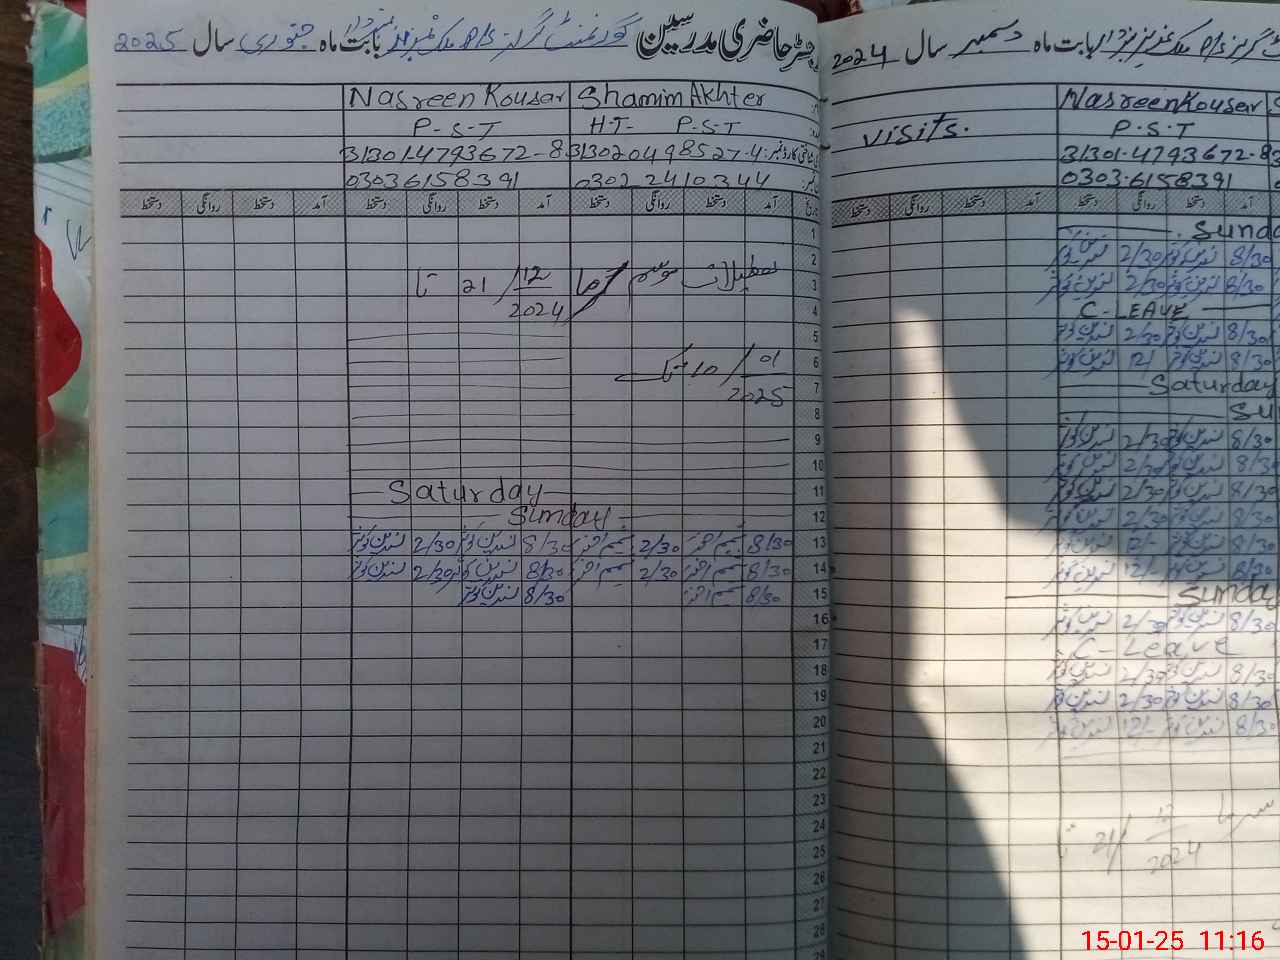 رجسٹر حاضری مدرسین گورنمنٹ گرلز P/S بابت ماہ جنوری سال 2025
Nasreen Kousar Shamim Akhter
P-S-T H.T- P.S.T
31301-4793672-8 313020498527-4
03036158391 0302-2410344
آمد دستخط روانگی دستخط آمد دستخط روانگی دستخط آمد دستخط روانگی دستخط
1
2
3 تعطیلات موسم 21/12/2024 تا
4
5
6 10/01/2025 تک
7
8
9
10
11 Saturday
12 Sunday
13 8/30 شمیم اختر 2/30 شمیم اختر 8/30 نسرین کوثر 2/30 نسرین کوثر
14 8/30 شمیم اختر 2/30 شمیم اختر 8/30 نسرین کوثر 2/30 نسرین کوثر
15 8/30 شمیم اختر 8/30 نسرین کوثر
16
17
18
19
20
21
22
23
24
25
26
27
28
29
بابت ماہ دسمبر سال 2024
Nasreen Kousar S
visits. P.S.T
31301-4793672-8
0303-6158391
آمد دستخط روانگی دستخط
Sunda
8/30 نسرین کوثر 2/30 نسرین کوثر
8/30 نسرین کوثر 2/30 نسرین کوثر
C-LEAVE
8/30 نسرین کوثر 2/30 نسرین کوثر
8/30 نسرین کوثر 12/- نسرین کوثر
Saturday
Su
8/30 نسرین کوثر 2/30 نسرین کوثر
8/30 نسرین کوثر 2/30 نسرین کوثر
8/30 نسرین کوثر 2/30 نسرین کوثر
8/30 نسرین کوثر 2/30 نسرین کوثر
8/30 نسرین کوثر 12/- نسرین کوثر
8/30 نسرین کوثر 12/- نسرین کوثر
Sunday
8/30 نسرین کوثر 2/30 نسرین کوثر
C-Leave
8/30 نسرین کوثر 2/30 نسرین کوثر
8/30 نسرین کوثر 2/30 نسرین کوثر
8/30 نسرین کوثر 12/- نسرین کوثر
سرما 21/12/2024 تا
15-01-25 11:16